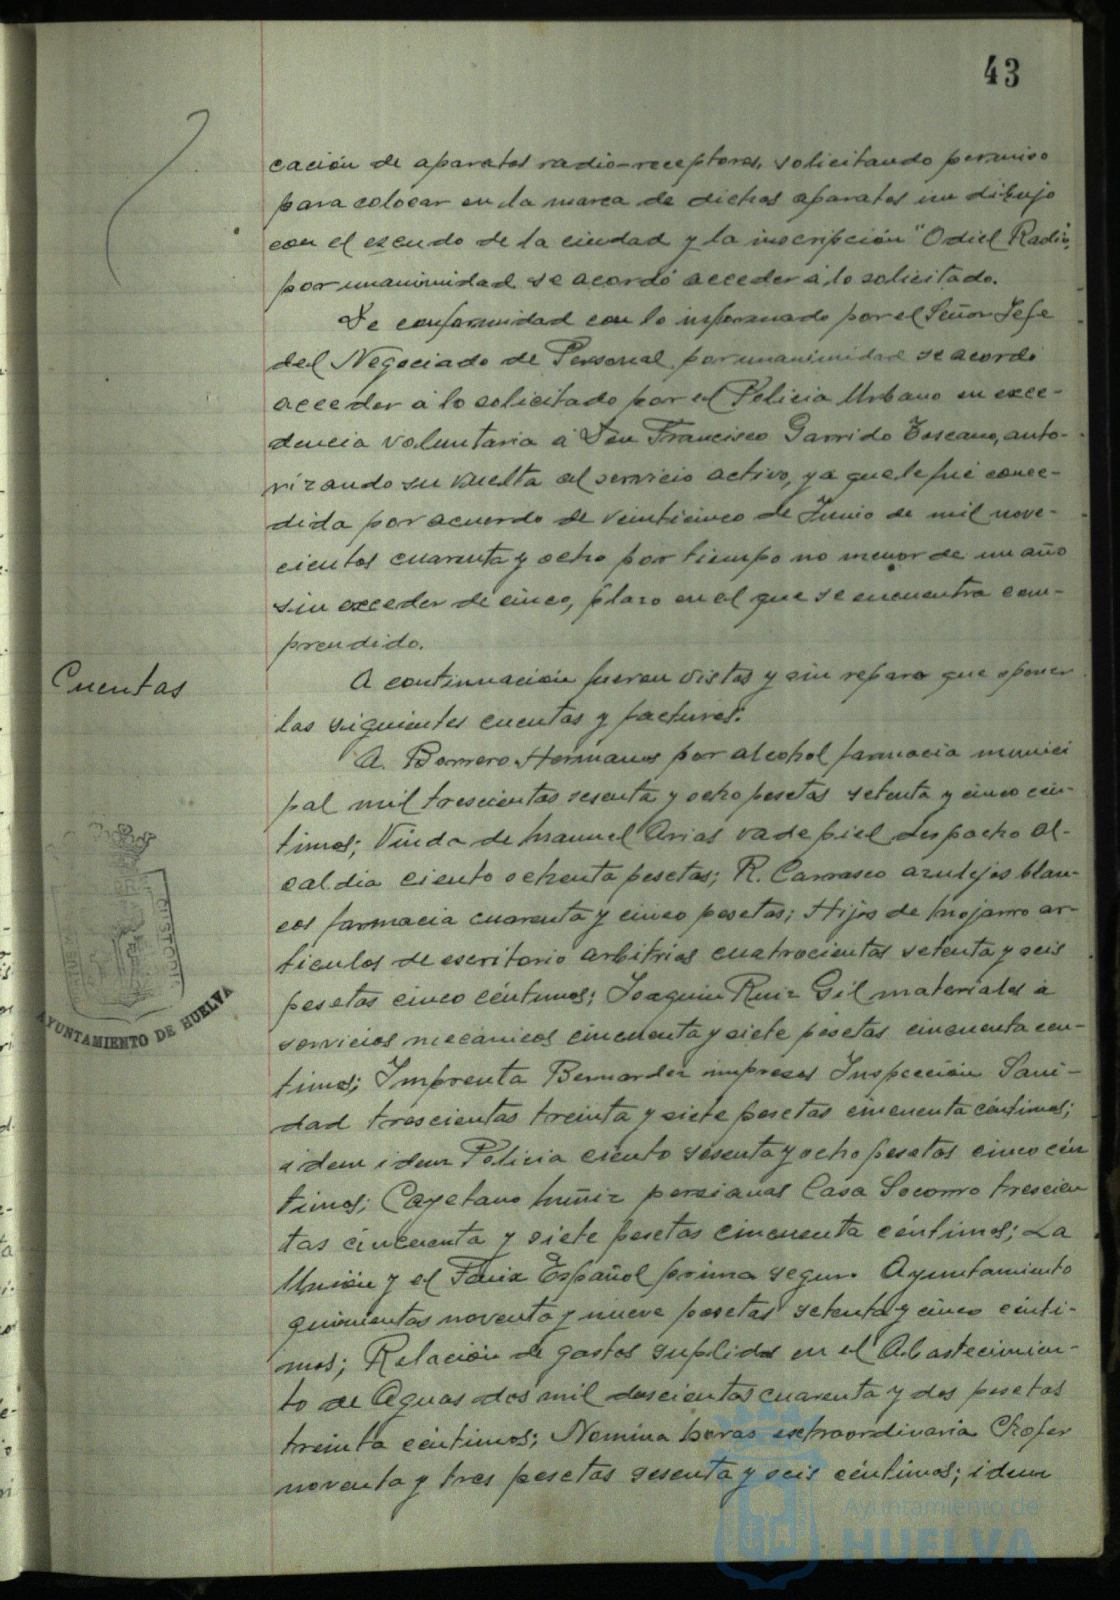 43
cación de aparatos radio-receptores, solicitando permiso
para colocar en la marca de dichos aparatos un dibujo
con el escudo de la ciudad y la inscripción "Odiel Radio,
por unanimidad se acordó acceder á lo solicitado.
De conformidad con lo informado por el Señor Jefe
del Negociado de Personal por unanimidad se acordó
acceder á lo solicitado por el Policia Urbano en exce-
dencia voluntaria á Don Francisco Garrido Toscano, auto-
rizando su vuelta al servicio activo, ya que le fué conce-
dida por acuerdo de veinticinco de Junio de mil nove-
cientos cuarenta y ocho por tiempo no menor de un año
sin exceder de cinco, plazo en el que se encuentra com-
prendido.
Cuentas
A continuación fueron vistas y sin reparo que oponer
las siguientes cuentas y facturas:
A. Borrero Hermanos por alcohol farmacia munici
pal mil trescientas sesenta y ocho pesetas setenta y cinco cén-
timos; Viuda de Manuel Arias vade piel despacho Al-
caldia ciento ochenta pesetas; R. Carrasco azulejos blan-
cos farmacia cuarenta y cinco pesetas; Hijos de Mojarro ar-
ticulos de escritorio arbitrios cuatrocientas setenta y seis
pesetas cinco céntimos; Joaquin Ruiz Gil materiales á
servicios mecánicos cincuenta y siete pesetas cincuenta cén-
timos; Imprenta Bernardez impresos Inspección Sani-
dad trescientas treinta y siete pesetas cincuenta céntimos;
idem idem Policia ciento sesenta y ocho pesetas cinco cén
timos; Cayetano Muñiz persianas Casa Socorro trescien
tas cincuenta y siete pesetas cincuenta céntimos; La
Unión y el Fenix Español prima segur. Ayuntamiento
quinientas noventa y nueve pesetas setenta y cinco cénti-
mos; Relación de gastos suplidos en el Abastecimien-
to de Aguas dos mil doscientas cuarenta y dos pesetas
treinta céntimos; Nomina horas extraordinaria Chofer
noventa y tres pesetas sesenta y seis céntimos; idem
AYUNTAMIENTO DE HUELVA
Ayuntamiento de
HUELVA